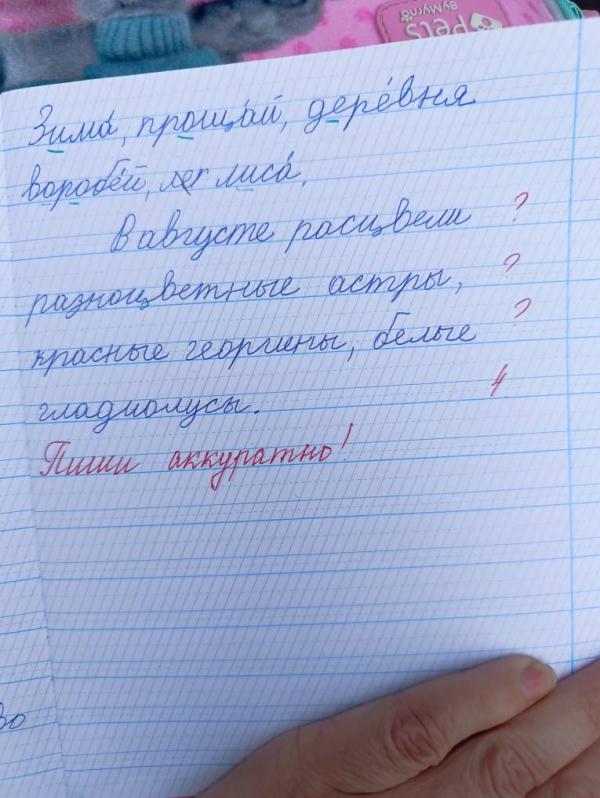 Pets
ByMyrno
Зима́, проща́й, дере́вня
воробе́й, лиса́,
В августе расцвели ?
разноцветные астры, ?
красные георгины, белые ?
гладиолусы. 4
Пиши аккуратно!
во